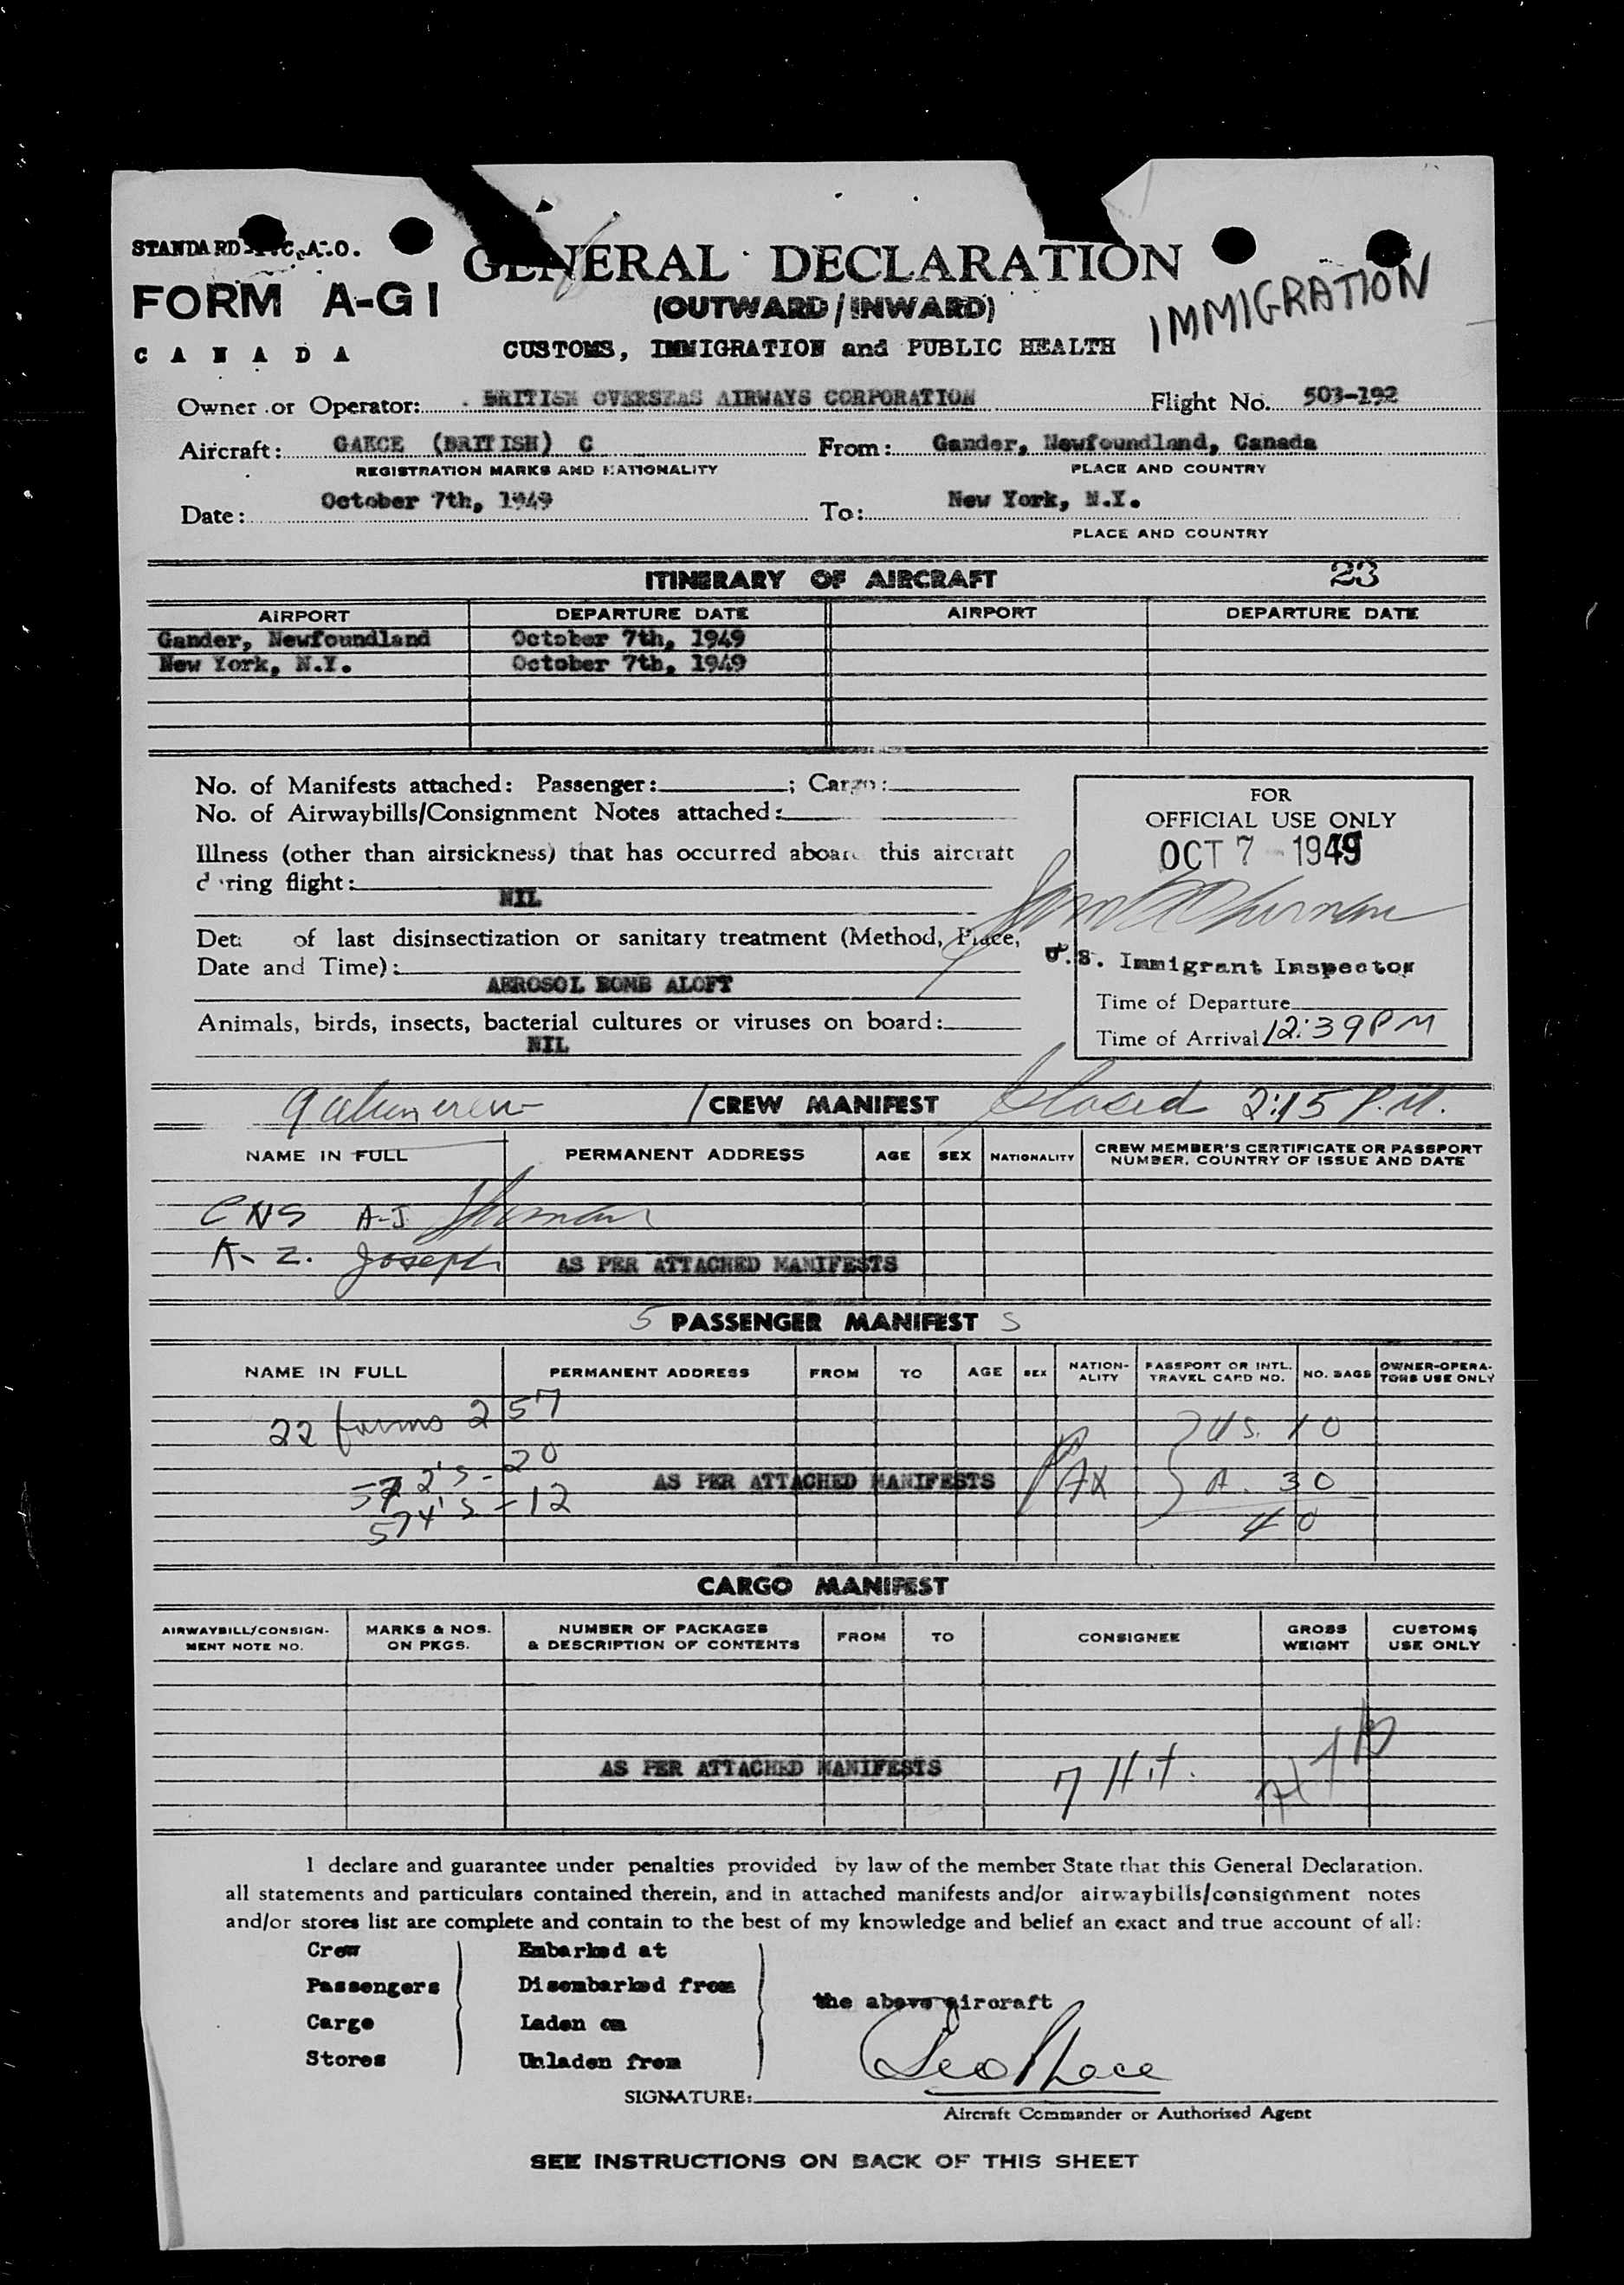 STANDARD I.C.A.O.
GENERAL DECLARATION
FORM A-G1
(OUTWARD/INWARD)
IMMIGRATION
CANADA
CUSTOMS, IMMIGRATION and PUBLIC HEALTH
Owner or Operator: BRITISH OVERSEAS AIRWAYS CORPORATION Flight No. 503-192
Aircraft: GAKCE (BRITISH) C From: Gander, Newfoundland, Canada
REGISTRATION MARKS AND NATIONALITY PLACE AND COUNTRY
Date: October 7th, 1949 To: New York, N.Y.
PLACE AND COUNTRY
ITINERARY OF AIRCRAFT 23
AIRPORT DEPARTURE DATE AIRPORT DEPARTURE DATE
Gander, Newfoundland October 7th, 1949
New York, N.Y. October 7th, 1949
No. of Manifests attached: Passenger: ; Cargo:
No. of Airwaybills/Consignment Notes attached:
Illness (other than airsickness) that has occurred aboard this aircraft
during flight:
NIL
Det of last disinsectization or sanitary treatment (Method, Place,
Date and Time):
AEROSOL BOMB ALOFT
Animals, birds, insects, bacterial cultures or viruses on board:
NIL
FOR
OFFICIAL USE ONLY
OCT 7 - 1949
U.S. Immigrant Inspector
Time of Departure
Time of Arrival 12:39 PM
9 alien crew CREW MANIFEST closed 2:15 P.M.
NAME IN FULL PERMANENT ADDRESS AGE SEX NATIONALITY CREW MEMBER'S CERTIFICATE OR PASSPORT
NUMBER, COUNTRY OF ISSUE AND DATE
CNS A-J
K-Z. Joseph
AS PER ATTACHED MANIFESTS
5 PASSENGER MANIFEST S
NAME IN FULL PERMANENT ADDRESS FROM TO AGE SEX NATION-
ALITY PASSPORT OR INTL.
TRAVEL CARD NO. NO. BAGS OWNER-OPERA-
TORS USE ONLY
22 forms 257
572's - 20
574's - 12
AS PER ATTACHED MANIFESTS
PAX
US. 10
A. 30
40
CARGO MANIFEST
AIRWAYBILL/CONSIGN-
MENT NOTE NO. MARKS & NOS.
ON PKGS. NUMBER OF PACKAGES
& DESCRIPTION OF CONTENTS FROM TO CONSIGNEE GROSS
WEIGHT CUSTOMS
USE ONLY
AS PER ATTACHED MANIFESTS
I declare and guarantee under penalties provided by law of the member State that this General Declaration.
all statements and particulars contained therein, and in attached manifests and/or airwaybills/consignment notes
and/or stores list are complete and contain to the best of my knowledge and belief an exact and true account of all:
Crew Embarked at
Passengers Disembarked from
the above aircraft
Cargo Laden on
Stores Unladen from
SIGNATURE:
Aircraft Commander or Authorized Agent
SEE INSTRUCTIONS ON BACK OF THIS SHEET